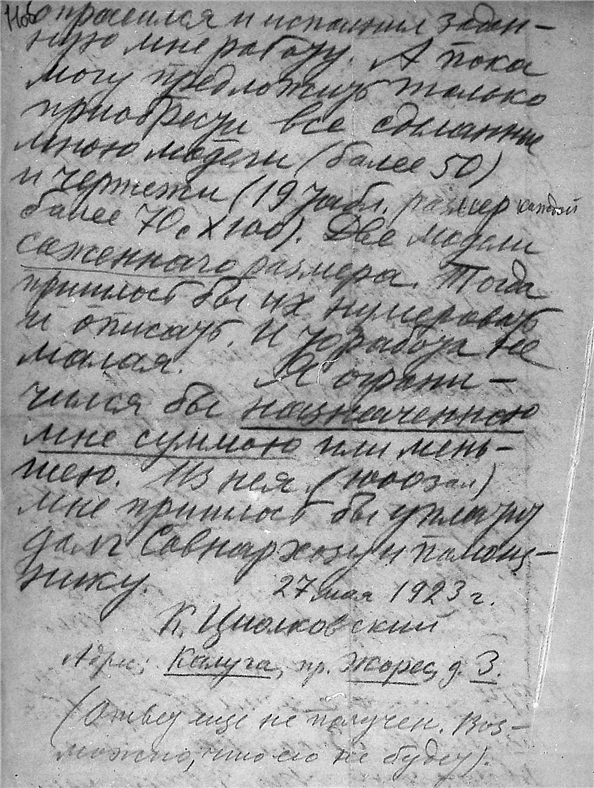 опрасился и исполнил задан-
ную мне работу. А пока
могу предложить только
приобрести все сделанные
мною модели (более 50)
и чертежи (19 табл., размер каждой
более 70с X 100). Две модели
саженного размера. Тогда
пришлось бы их нумеровать
и описать. И то работа не
малая. Я ограни-
чился бы назначенною
мне суммою или мень-
шею. Из нея (100 зол.)
мне пришлось бы уплатить
долг Совнархозу и помощ-
нику.
27 мая 1923 г.
К. Циолковский
Адрес: Калуга, пр. Жореса, д. 3.
(Ответ еще не получен. Воз-
можно, что его не будет).